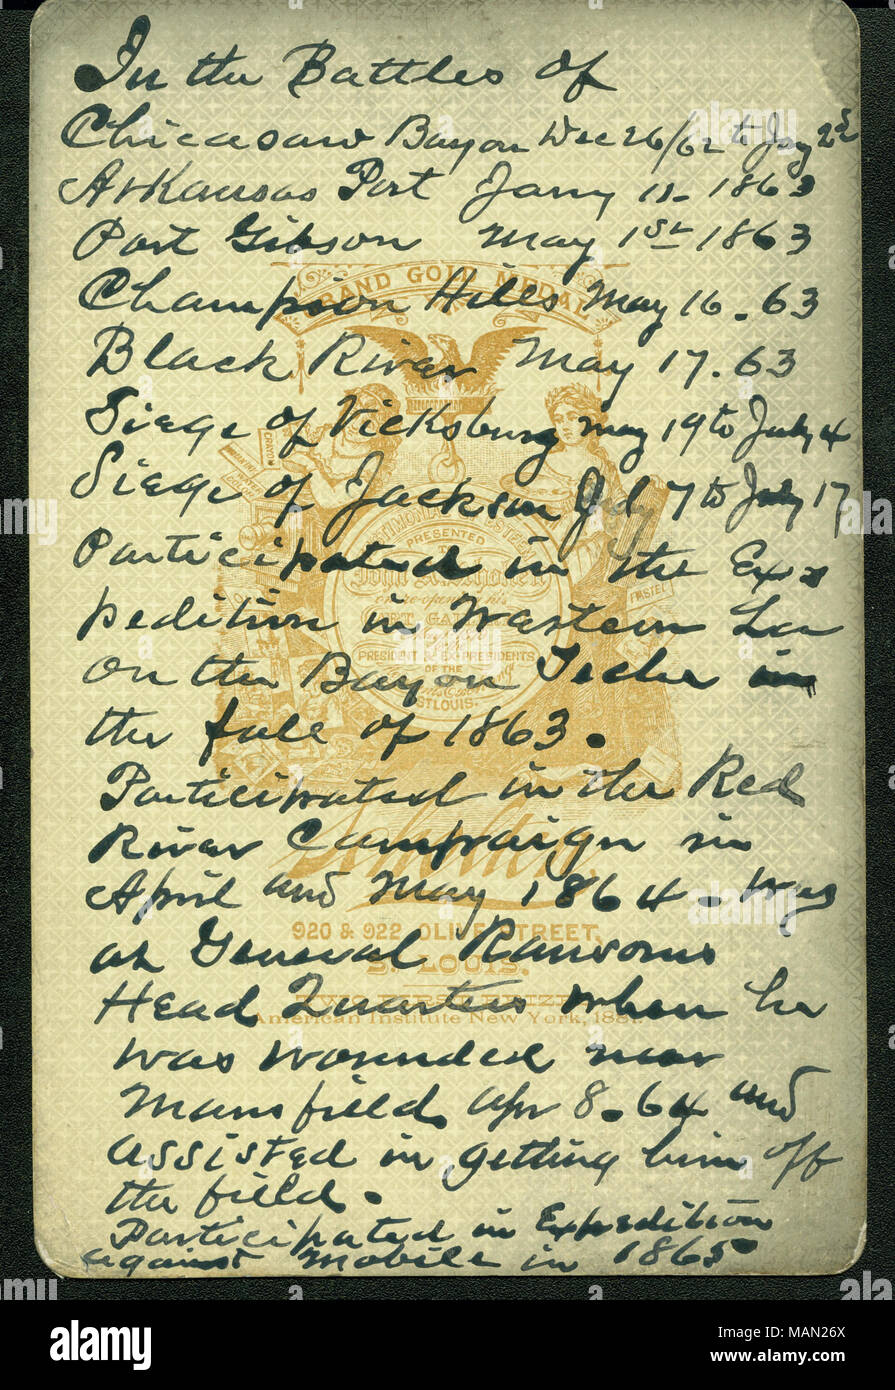 In the Battles of
Chicasaw Bayou Dec 26/62 to Jany 2d
Arkansas Post Jany 11. 1863
Port Gibson May 1st 1863
Champion Hills May 16. 63
Black River May 17. 63
Siege of Vicksburg May 19 to July 4
Siege of Jackson July 7 to July 17
Participated in the Ex-
pedition in Western La
on the Bayou Teche in
the fall of 1863.
Participated in the Red
River Campaign in
April and May 1864. Was
at General Ransoms
Head Quarters when he
was wounded near
Mansfield Apr 8. 64 and
assisted in getting him off
the field.
Participated in Expedition
against Mobile in 1865
GRAND GOLD MEDAL
CRAYON
PASTEL
PRESENTED
John A. Scholten
ART GA
PRESIDENT & EX-PRESIDENTS
OF THE
ST LOUIS.
Scholten
920 & 922 OLIVE STREET,
ST. LOUIS.
American Institute New York, 1881.
a alamy stock photo
MAN26X
www.alamy.com